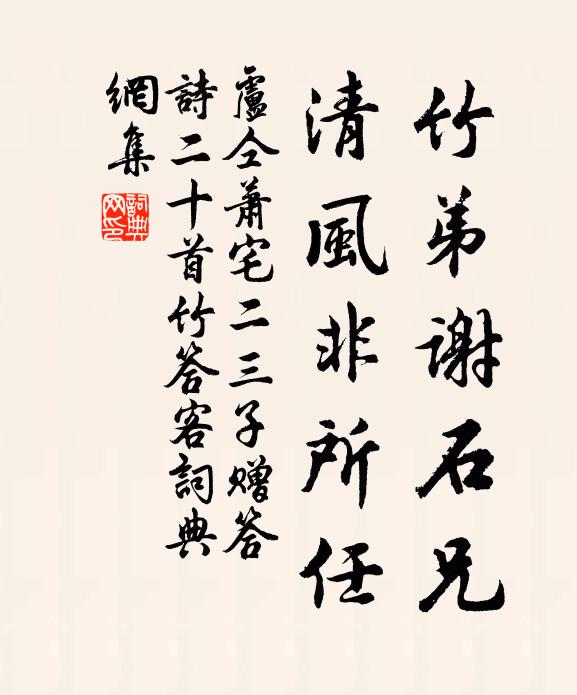 竹弟謝石兄
清風非所任
盧仝蕭宅二三子贈答
詩二十首竹答客詞典
網集
詞典
网印